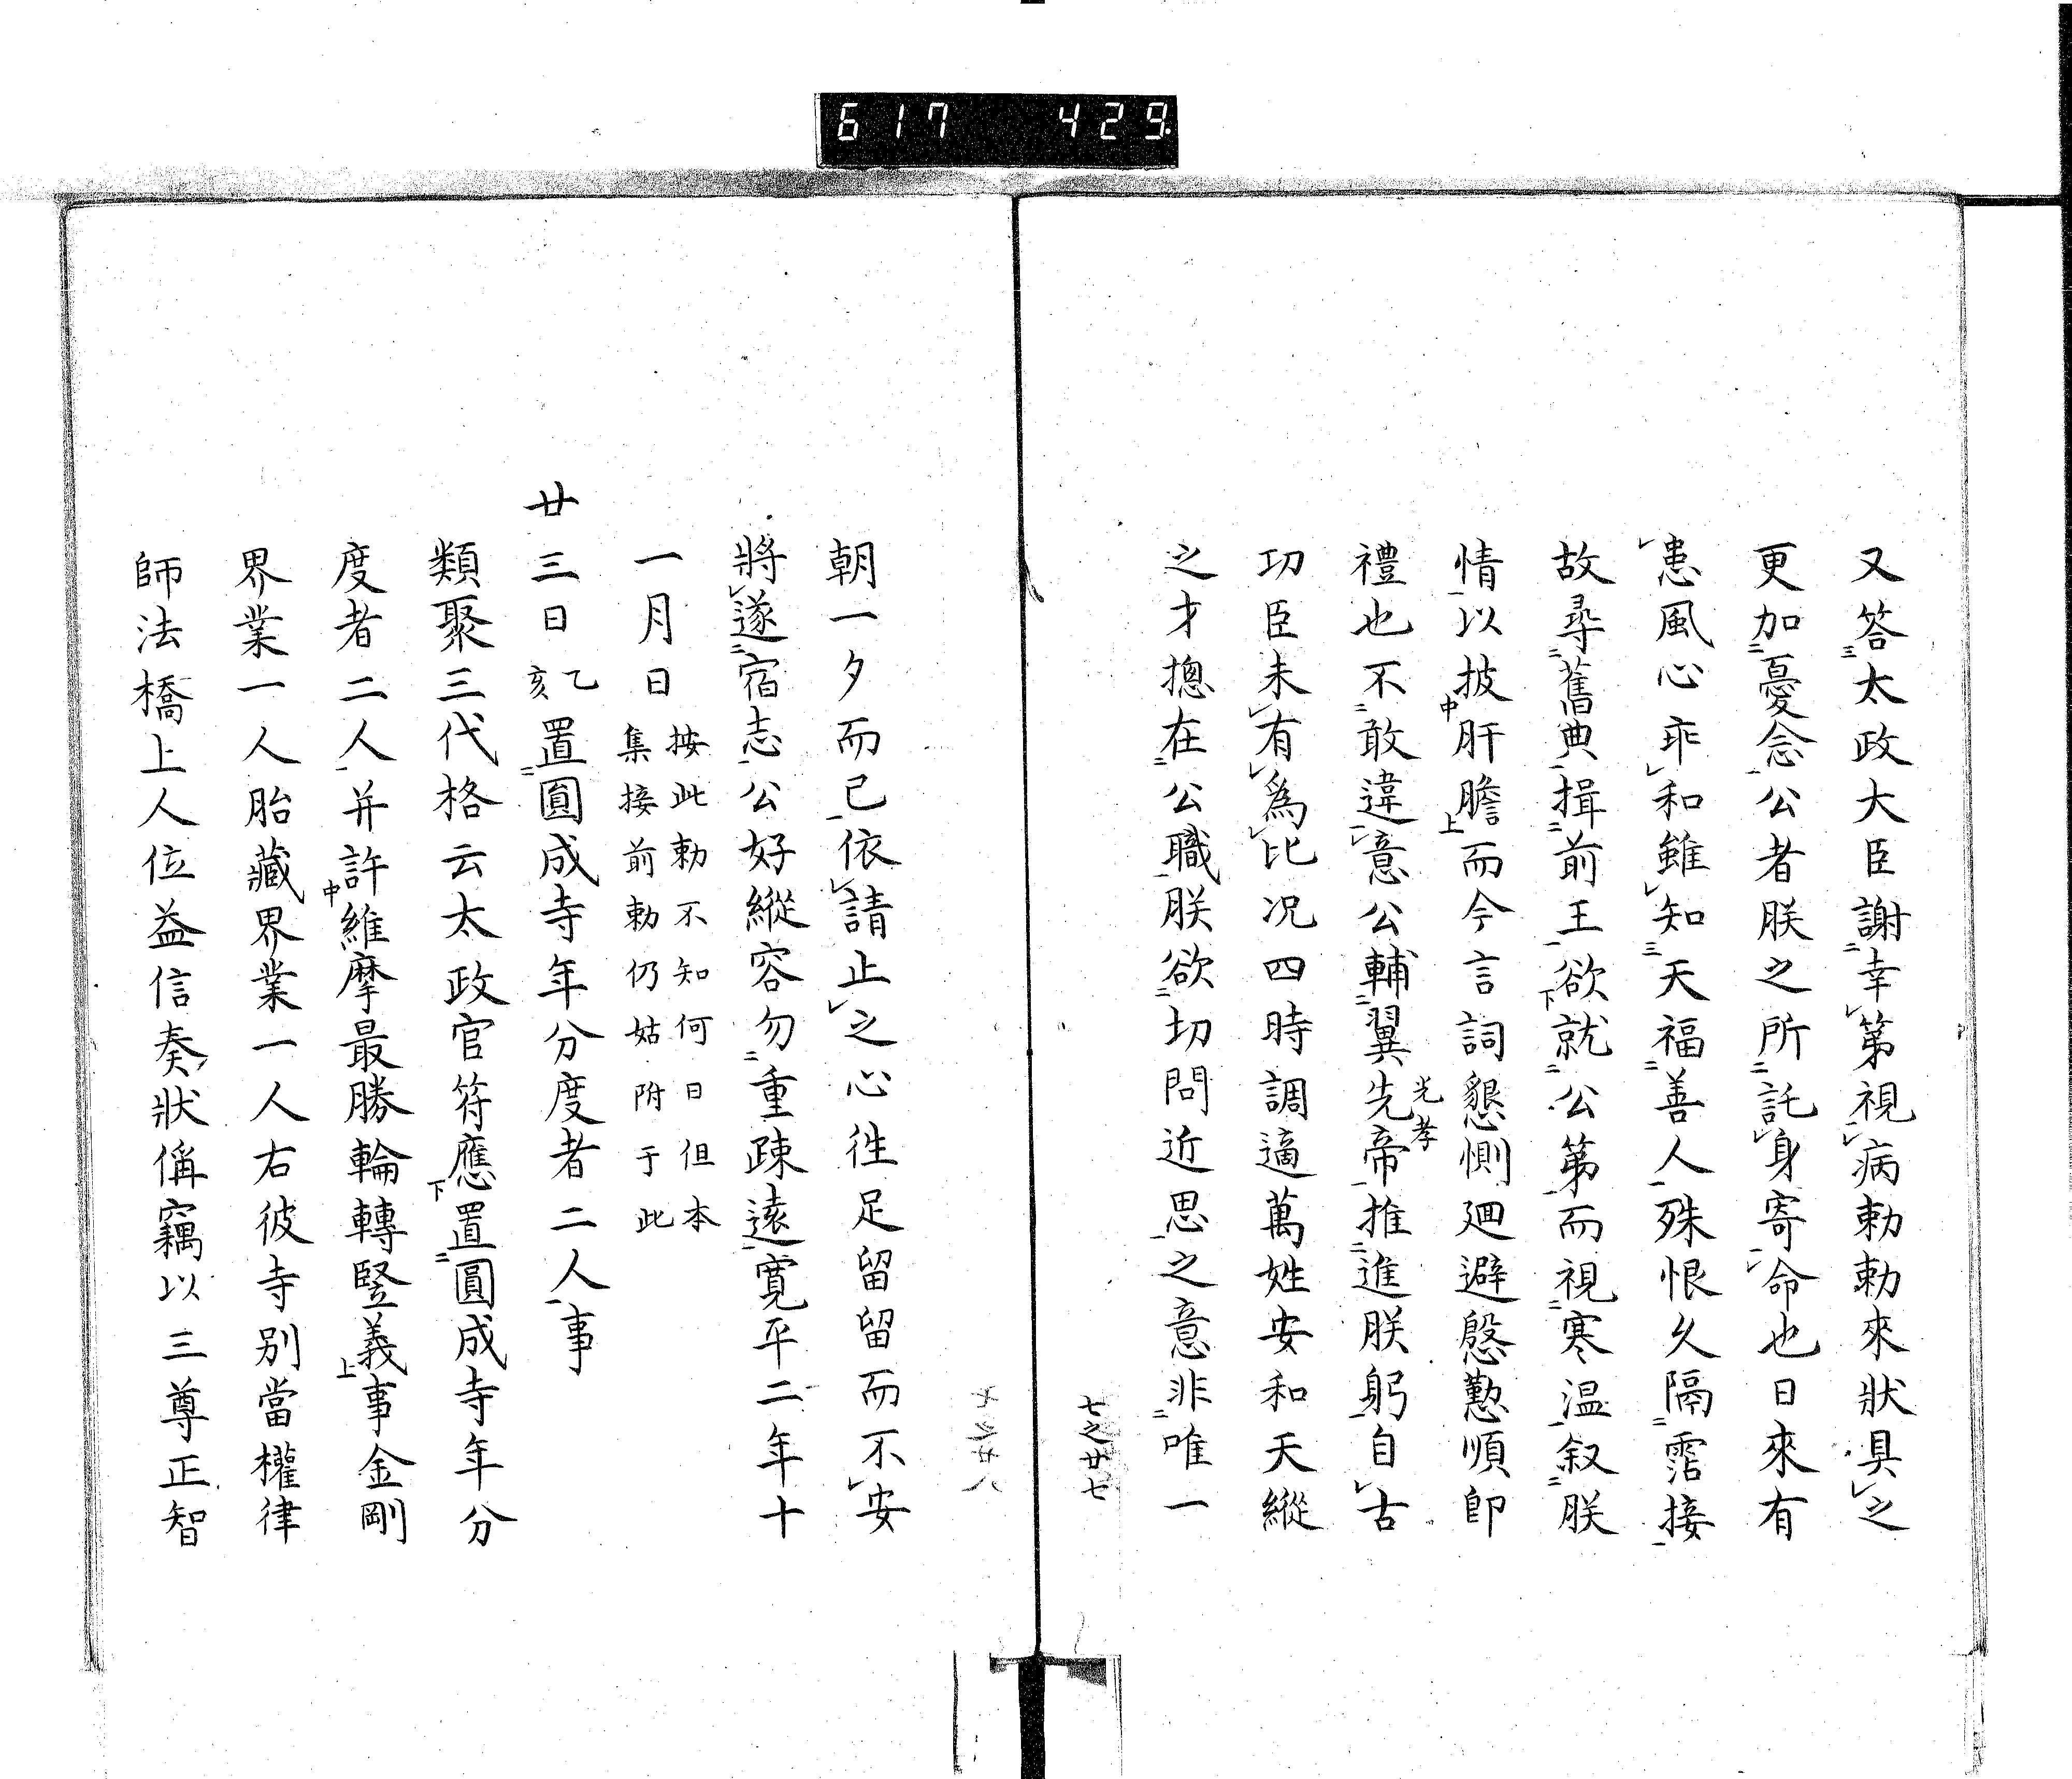 617 429
又答太政大臣謝幸第視病勅勅來狀具之
更加憂念公者朕之所託身寄命也日來有
恚風心乖和雖知天福善人殊恨久隔霑接
故尋舊典揖前王欲就公第而視寒温叙朕
情以披肝膽而今言詞懇惻廻避慇懃順卽
禮也不敢違意公輔翼先帝推進朕躬自古
光孝
功臣未有爲比况四時調適萬姓安和天縱
之才摠在公職朕欲切問近思之意非唯一
七之廿七
朝一夕而已依請止之心徃足留留而不安
將遂宿志公好縱容勿重疎遠寛平二年十
一月日按此勅不知何日但本
集接前勅仍姑附于此
廿三日乙亥置圓成寺年分度者二人事
類聚三代格云太政官符應置圓成寺年分
度者二人并許維摩最勝輪轉竪義事金剛
界業一人胎藏界業一人右彼寺別當權律
師法橋上人位益信奏狀偁竊以三尊正智